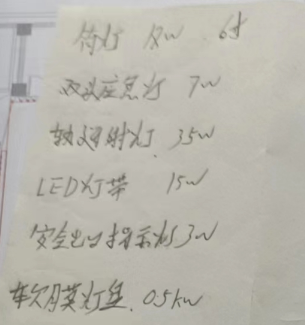 筒灯 12W 6寸
双头应急灯 7W
轨道射灯 35W
LED灯带 15W
安全出口指示灯 3W
软膜灯盒 0.5KW